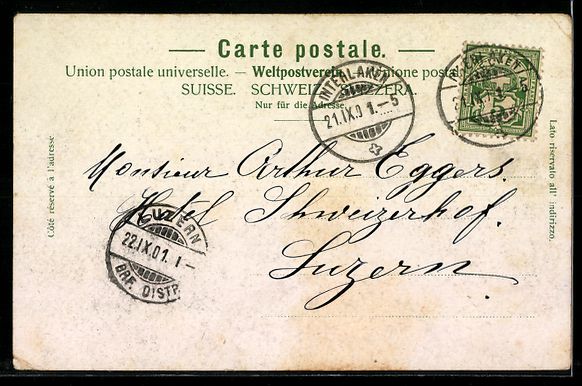 — Carte postale. —
Union postale universelle. — Weltpostverein. — Unione postale
SUISSE. SCHWEIZ. SVIZZERA.
Nur für die Adresse.
INTERLAKEN
21.IX.01.–5
21.IX.01.–5
Côté réservé à l'adresse
Lato riservato all' indirizzo.
Monsieur Arthur Eggers.
Hotel Schweizerhof.
Luzern.
LUZERN
22.IX.01. I–
BRF. DISTR.